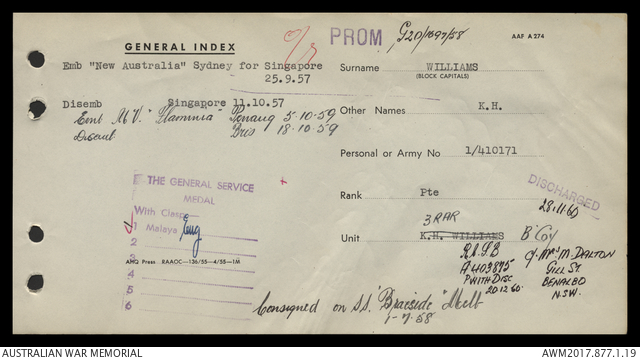 GENERAL INDEX
o/s PROM G20/1097/58 AAF A 274
Emb "New Australia" Sydney for Singapore
25.9.57
Surname WILLIAMS
(BLOCK CAPITALS)
Disemb Singapore 11.10.57
Emb M.V. "Flaminia" Penang 5-10-59
Disemb Bris 18-10-59
Other Names K.H.
Personal or Army No 1/410171
THE GENERAL SERVICE
MEDAL
With Clasps
1 Malaya
2
3
4
5
6
AHQ Press RAAOC—136/55—4/55—1M
Rank Pte
DISCHARGED
28.11.60
3 RAR
Unit K.H. WILLIAMS B Coy
A403895
P WITH DISC
20.12.60
M. DALTON
GILL ST.
BENALBO
N.S.W.
Consigned on S.S. "Braeside" Melb
1-7-58
AUSTRALIAN WAR MEMORIAL
AWM2017.877.1.19